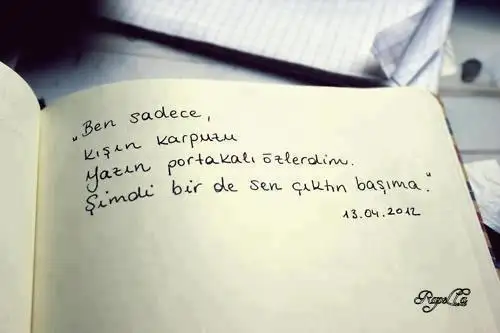 "Ben sadece,
kışın karpuzu
yazın portakalı özlerdim.
Şimdi bir de sen çıktın başıma."
13.04.2012
Rapella